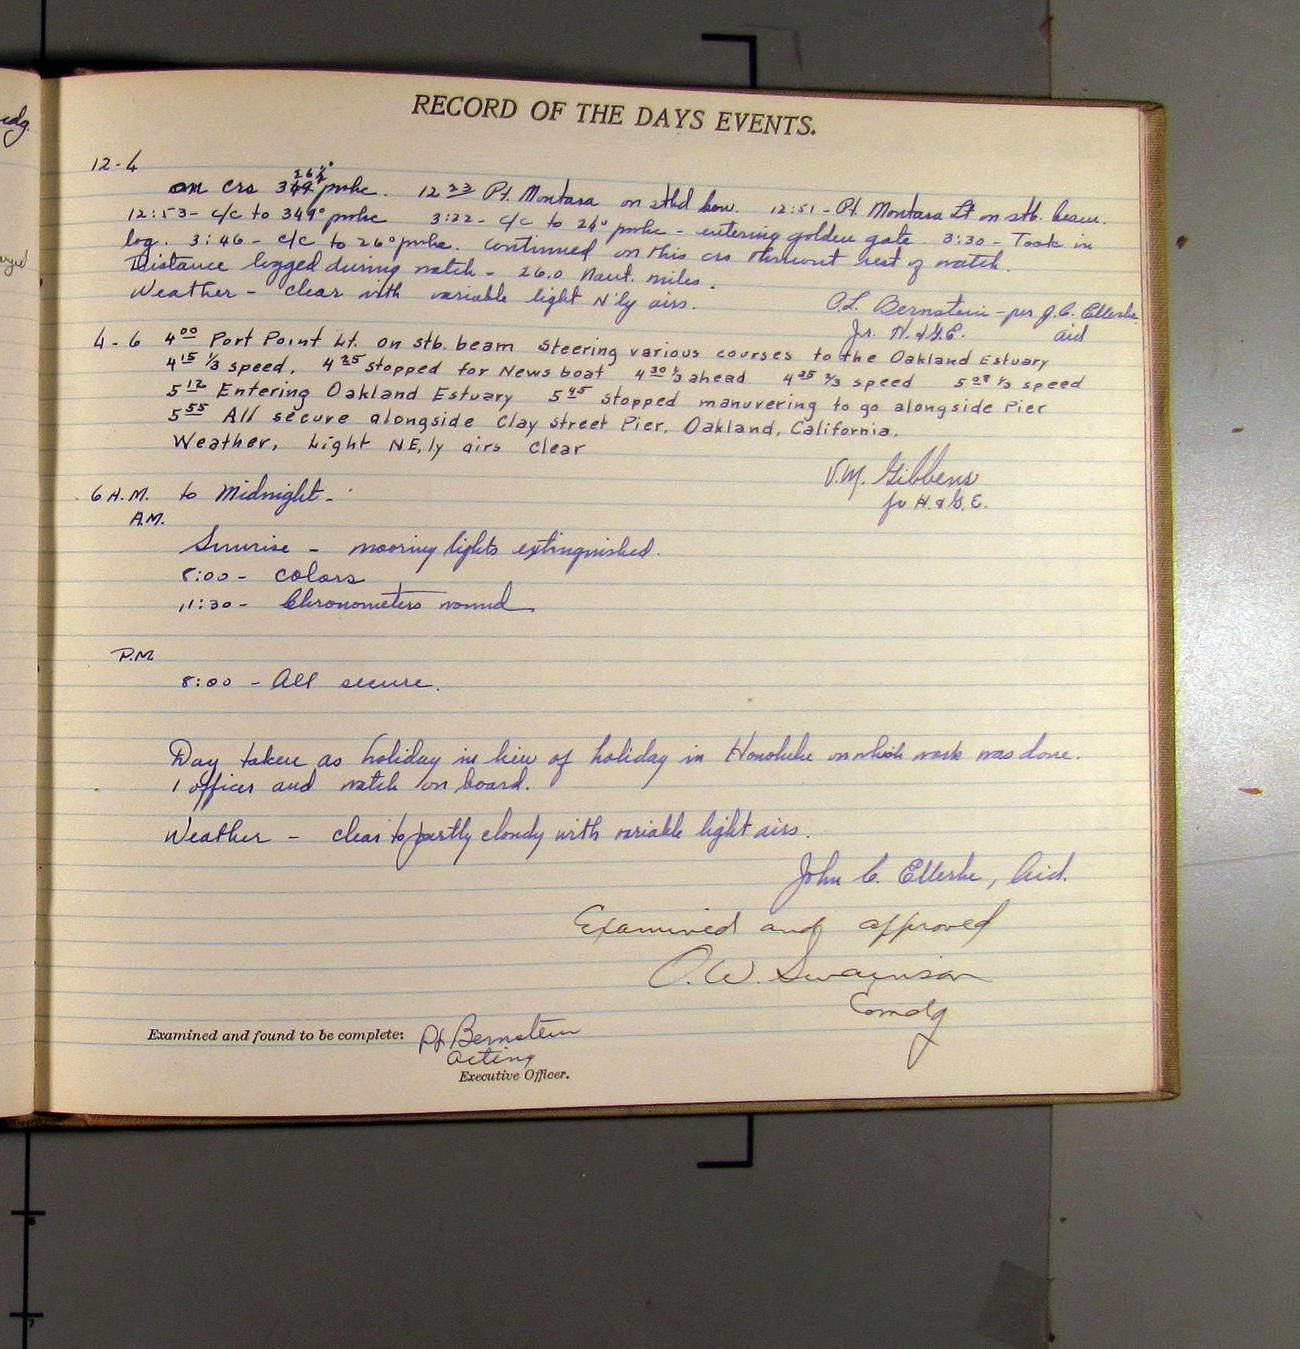 RECORD OF THE DAYS EVENTS.
12-4
on crs 326½° pmhc. 12 23 Pt. Montara on stbd bow. 12:51 - Pt. Montara Lt on stb. beam.
12:53 - c/c to 349° pmhc 3:22 - c/c to 24° pmhc - entering golden gate 3:30 - Took in
log. 3:46 - c/c to 26° pmhc. Continued on this crs thruout rest of watch.
Distance logged during watch - 26.0 Naut. miles.
Weather - clear with variable light N'ly airs.
O.L. Bernstein - per J.C. Ellerbe
Jr. H. & G.E. aid
4-6 4 00 Port Point Lt. on stb. beam Steering various courses to the Oakland Estuary
4 15 ⅓ speed, 4 25 stopped for News boat 4 30 ⅓ ahead 4 35 ⅔ speed 5 08 ⅓ speed
5 12 Entering Oakland Estuary 5 45 stopped manuvering to go alongside Pier
5 55 All secure alongside Clay Street Pier, Oakland, California.
Weather, Light NE,ly airs clear
V.M. Gibbens
jr H. & G. E.
6 A.M. to Midnight -
A.M.
Sunrise - mooring lights extinguished.
8:00 - colors
11:30 - Chronometers wound
P.M.
8:00 - All secure.
Day taken as holiday in lieu of holiday in Honolulu on which work was done.
1 officer and watch on board.
Weather - clear to partly cloudy with variable light airs.
John C. Ellerbe, Aid.
Examined and approved
O.W. Swainson
Comdg
Examined and found to be complete: Bernstein
acting
Executive Officer.